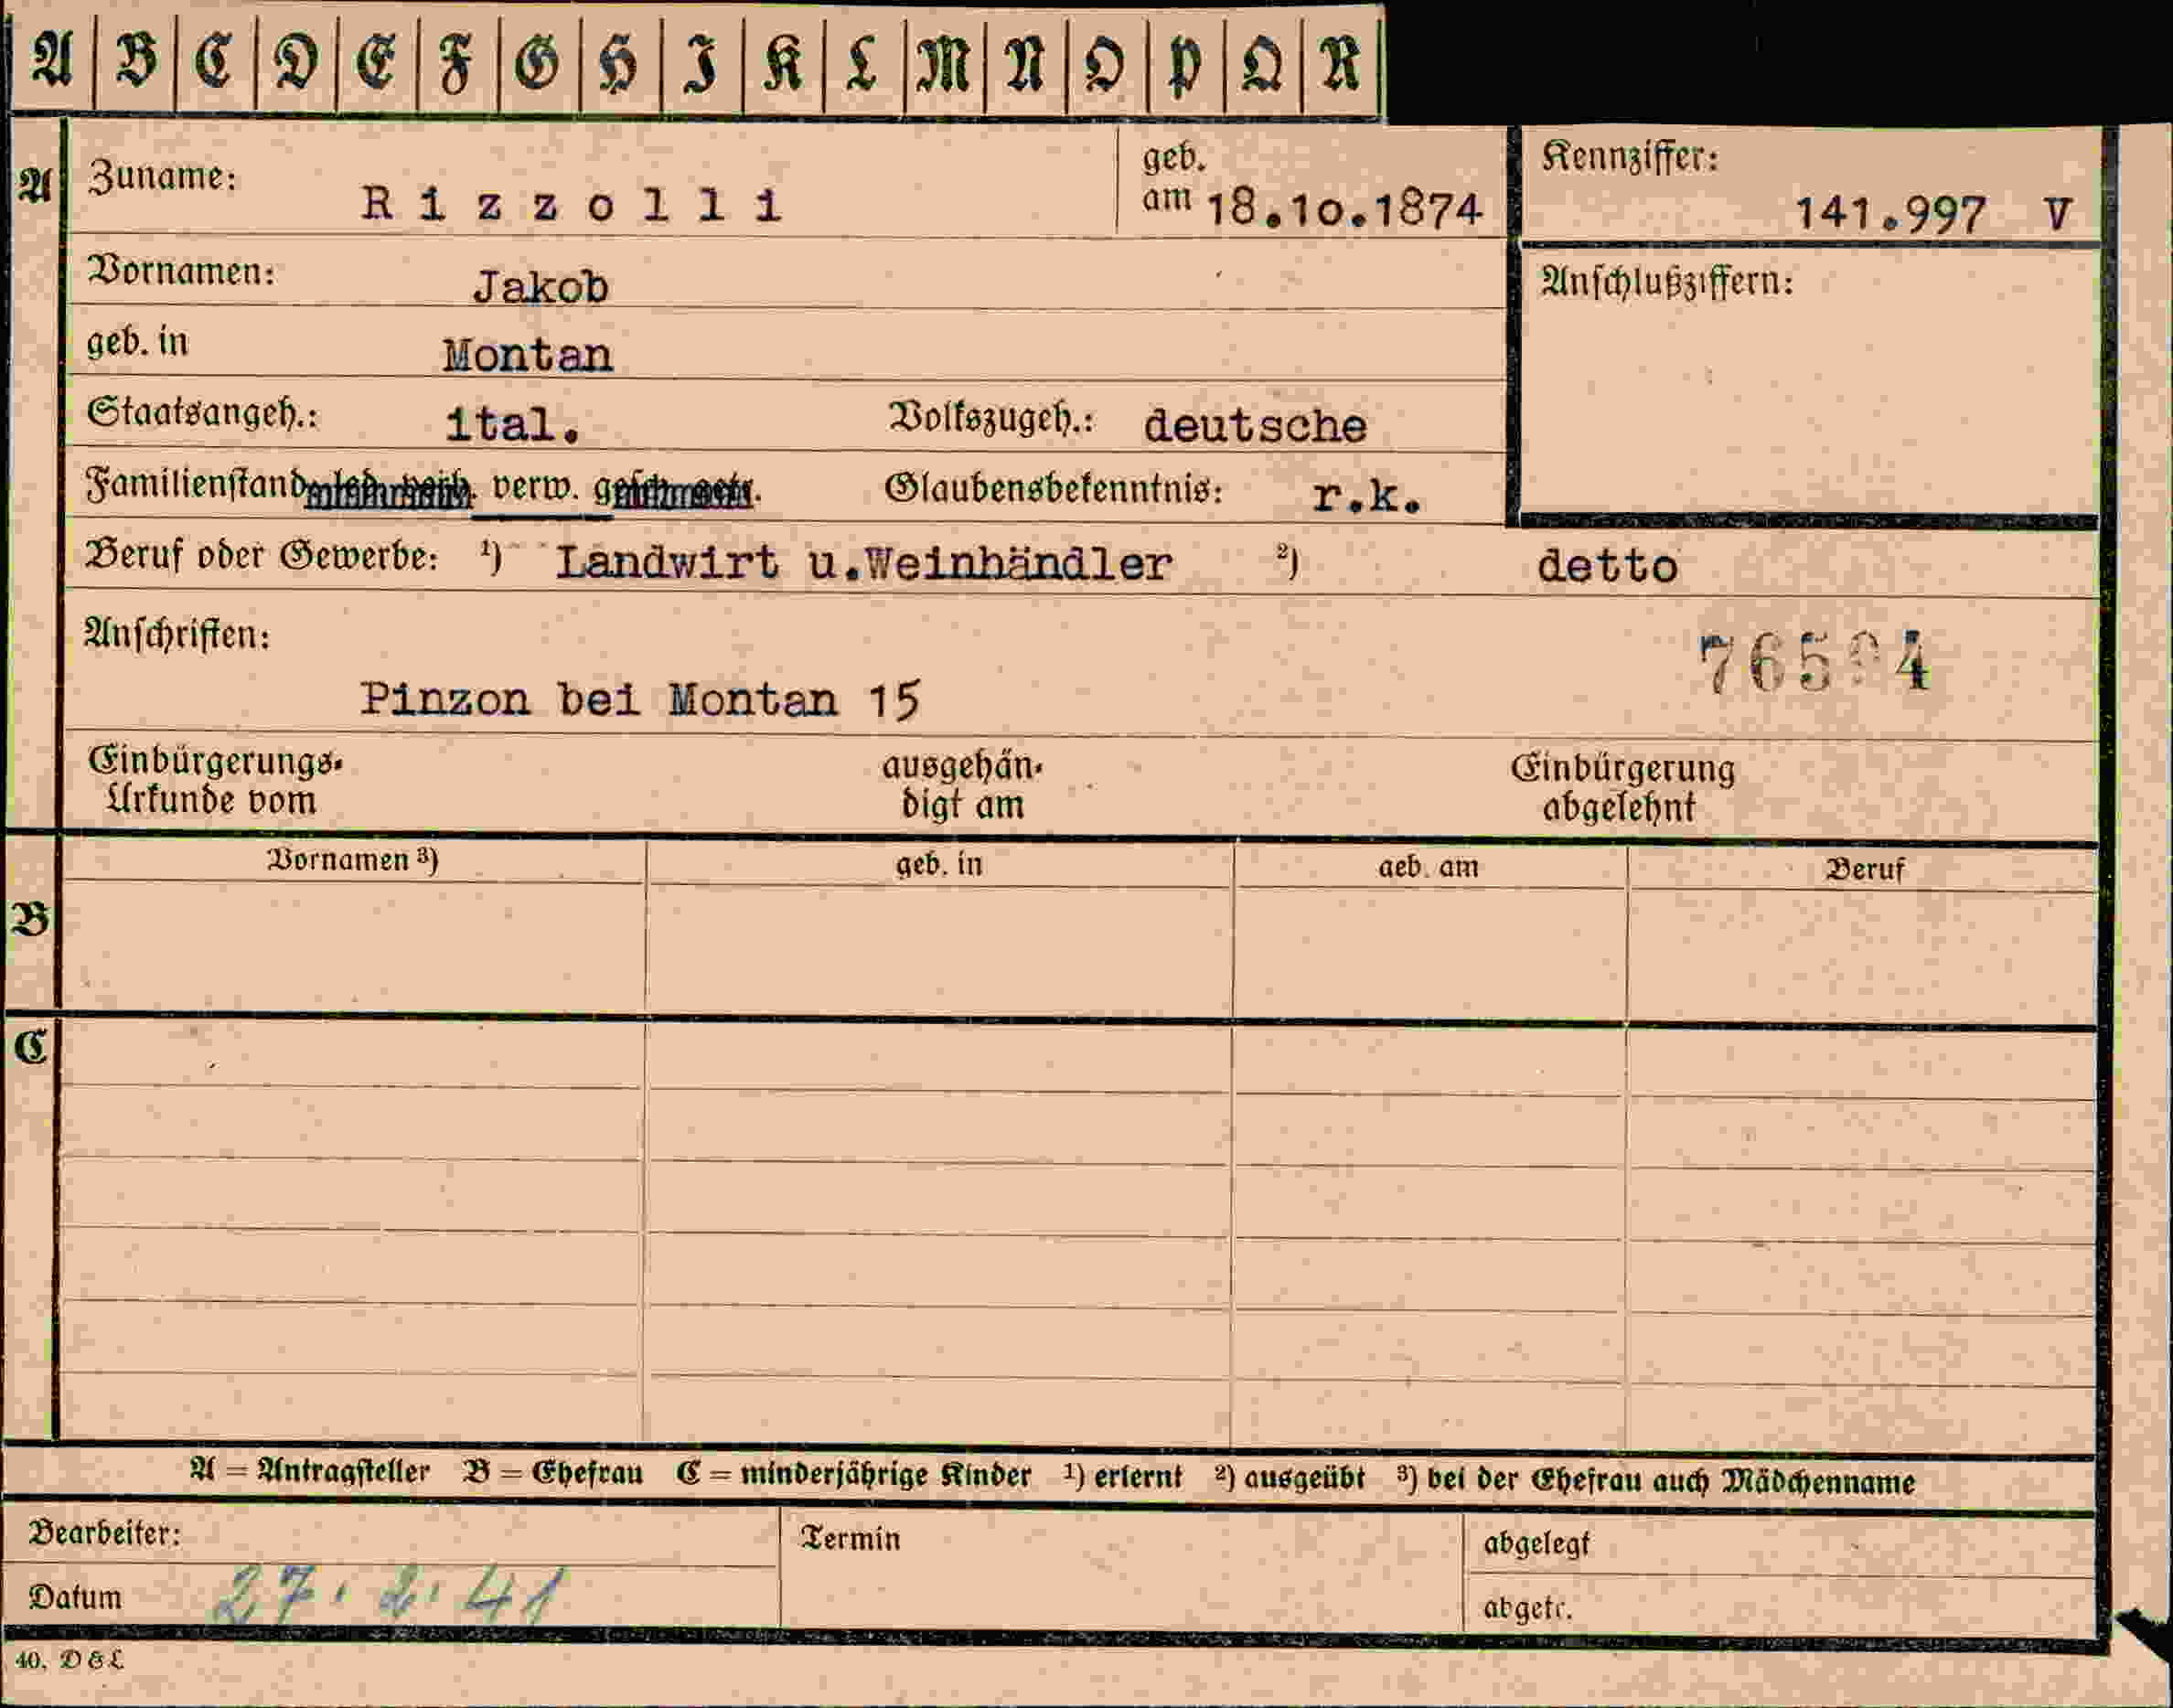 A B C D E F G H I K L M N O P Q R
A Zuname: Rizzolli geb. am 18.10.1874 Kennziffer: 141.997 V
Vornamen: Jakob Anschlußziffern:
geb. in Montan
Staatsangeh.: ital. Volkszugeh.: deutsche
Familienstand verw. Glaubensbekenntnis: r.k.
Beruf oder Gewerbe: ¹) Landwirt u.Weinhändler ²) detto
Anschriften:
Pinzon bei Montan 15
Einbürgerungs- ausgehän- Einbürgerung
Urkunde vom digt am abgelehnt
Vornamen ³) geb. in geb. am Beruf
B
C
A = Antragsteller B = Ehefrau C = minderjährige Kinder ¹) erlernt ²) ausgeübt ³) bei der Ehefrau auch Mädchenname
Bearbeiter: Termin abgelegt
Datum 27.2.41 abgetr.
40. D & L